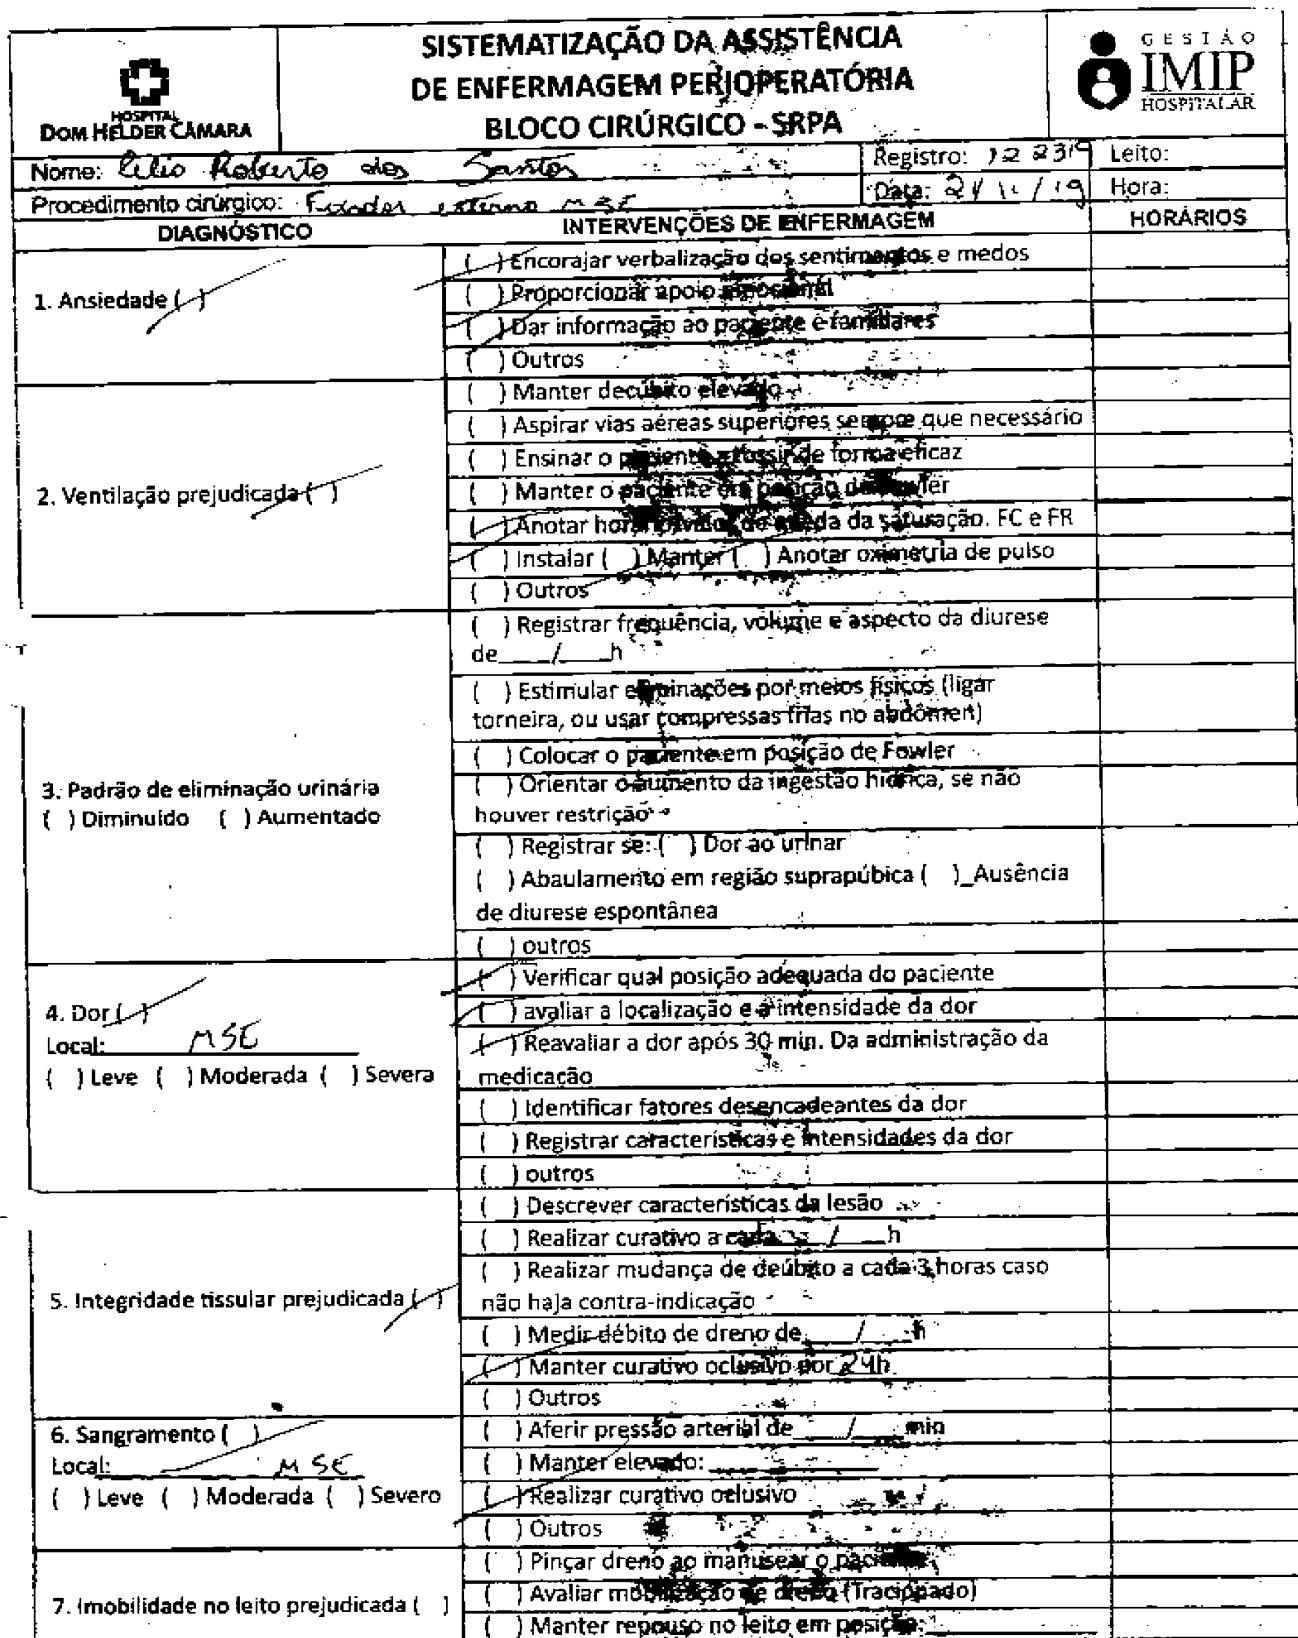 HOSPITAL
DOM HELDER CÂMARA
SISTEMATIZAÇÃO DA ASSISTÊNCIA
DE ENFERMAGEM PERIOPERATÓRIA
BLOCO CIRÚRGICO - SRPA
GESTÃO
IMIP
HOSPITALAR
Nome: Roberto dos Santos
Registro: 122319
Leito:
Procedimento cirúrgico: externo MSE
Data: /19
Hora:
DIAGNÓSTICO
INTERVENÇÕES DE ENFERMAGEM
HORÁRIOS
1. Ansiedade ( )
( ) Encorajar verbalização dos sentimentos e medos
( ) Proporcionar apoio emocional
( ) Dar informação ao paciente e familiares
( ) Outros
2. Ventilação prejudicada ( )
( ) Manter decúbito elevado
( ) Aspirar vias aéreas superiores sempre que necessário
( ) Ensinar o paciente a tossir de forma eficaz
( ) Manter o paciente em posição de Fowler
( ) Anotar de queda da saturação. FC e FR
( ) Instalar ( ) Manter ( ) Anotar oximetria de pulso
( ) Outros
3. Padrão de eliminação urinária
( ) Diminuído ( ) Aumentado
( ) Registrar frequência, volume e aspecto da diurese
de____/____h
( ) Estimular eliminações por meios físicos (ligar
torneira, ou usar compressas frias no abdômen)
( ) Colocar o paciente em posição de Fowler
( ) Orientar o aumento da ingestão hídrica, se não
houver restrição
( ) Registrar se: ( ) Dor ao urinar
( ) Abaulamento em região suprapúbica ( )_Ausência
de diurese espontânea
( ) outros
4. Dor ( )
Local: MSE
( ) Leve ( ) Moderada ( ) Severa
( ) Verificar qual posição adequada do paciente
( ) avaliar a localização e a intensidade da dor
( ) Reavaliar a dor após 30 min. Da administração da
medicação
( ) Identificar fatores desencadeantes da dor
( ) Registrar características e intensidades da dor
( ) outros
5. Integridade tissular prejudicada ( )
( ) Descrever características da lesão
( ) Realizar curativo a cada ____/____h
( ) Realizar mudança de deúbito a cada 3 horas caso
não haja contra-indicação
( ) Medir débito de dreno de____/____h
( ) Manter curativo oclusivo por 24h
( ) Outros
6. Sangramento ( )
Local: MSE
( ) Leve ( ) Moderada ( ) Severo
( ) Aferir pressão arterial de____/____min
( ) Manter elevado:
( ) Realizar curativo oclusivo
( ) Outros
7. Imobilidade no leito prejudicada ( )
( ) Pinçar dreno ao manusear o paciente
( ) Avaliar mobilização de dreno (Tracionado)
( ) Manter repouso no leito em posição: